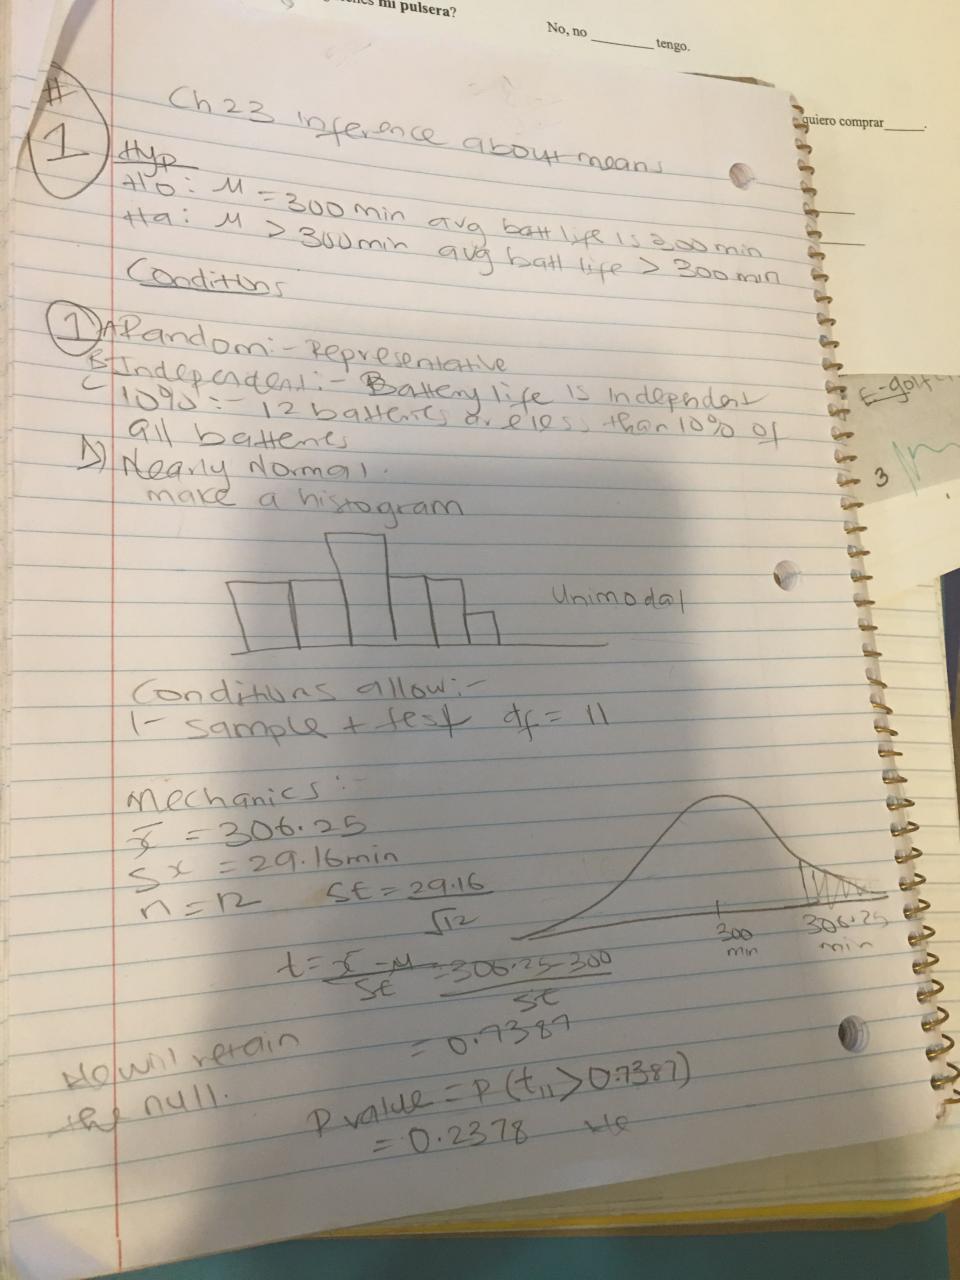 mi pulsera?
No, no ________ tengo.
quiero comprar______.
#1
Ch 23 Inference about means
Hyp
Ho: μ = 300 min avg batt life is 300 min
Ha: μ > 300 min avg batt life > 300 min
Conditions
1 A) Random:- Representative
B- Independent:- Battery life is independent
C 10%:- 12 batteries are less than 10% of
all batteries
D) Nearly Normal.
make a histogram
Unimodal
Conditions allow:-
1- sample t test df = 11
Mechanics:-
x̄ = 306.25
Sx = 29.16min
n = 12 SE = 29.16/√12
300 min
306.25 min
t = x̄ - μ / SE = 306.25-300 / SE
= 0.7387
We will retain
the null.
P value = P (t₁₁ > 0.7387)
= 0.2378 We
3